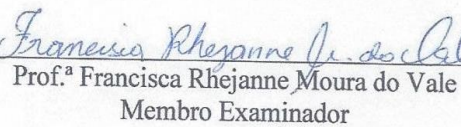 Francisca Rhejanne M. do Vale
Prof.ª Francisca Rhejanne Moura do Vale
Membro Examinador